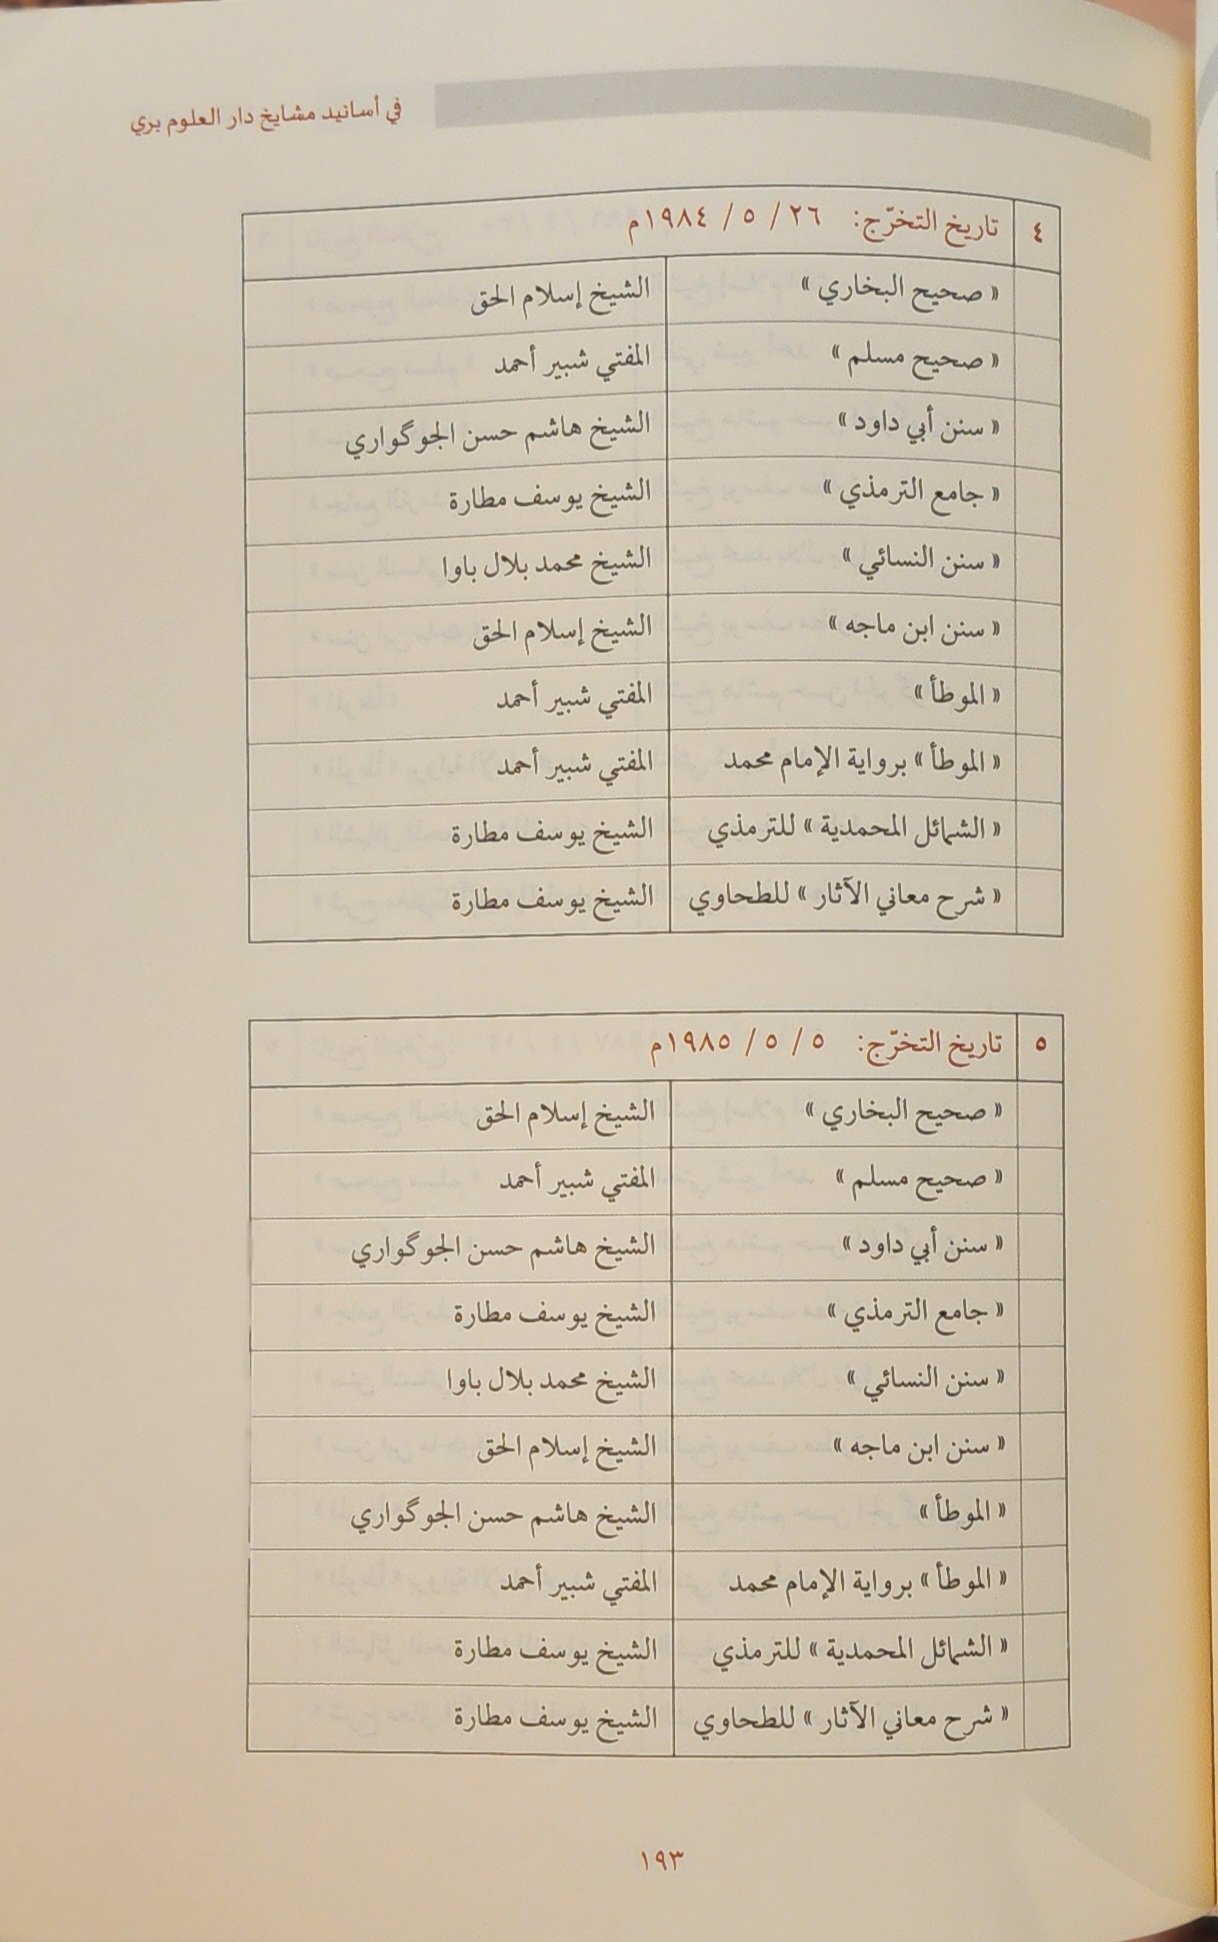 في أسانيد مشايخ دار العلوم بري
٤ تاريخ التخرّج: ٢٦ / ٥ / ١٩٨٤م
« صحيح البخاري » الشيخ إسلام الحق
« صحيح مسلم » المفتي شبير أحمد
« سنن أبي داود » الشيخ هاشم حسن الجوگواري
« جامع الترمذي » الشيخ يوسف مطارة
« سنن النسائي » الشيخ محمد بلال باوا
« سنن ابن ماجه » الشيخ إسلام الحق
« الموطأ » المفتي شبير أحمد
« الموطأ » برواية الإمام محمد المفتي شبير أحمد
« الشمائل المحمدية » للترمذي الشيخ يوسف مطارة
« شرح معاني الآثار » للطحاوي الشيخ يوسف مطارة
٥ تاريخ التخرّج: ٥ / ٥ / ١٩٨٥م
« صحيح البخاري » الشيخ إسلام الحق
« صحيح مسلم » المفتي شبير أحمد
« سنن أبي داود » الشيخ هاشم حسن الجوگواري
« جامع الترمذي » الشيخ يوسف مطارة
« سنن النسائي » الشيخ محمد بلال باوا
« سنن ابن ماجه » الشيخ إسلام الحق
« الموطأ » الشيخ هاشم حسن الجوگواري
« الموطأ » برواية الإمام محمد المفتي شبير أحمد
« الشمائل المحمدية » للترمذي الشيخ يوسف مطارة
« شرح معاني الآثار » للطحاوي الشيخ يوسف مطارة
١٩٣